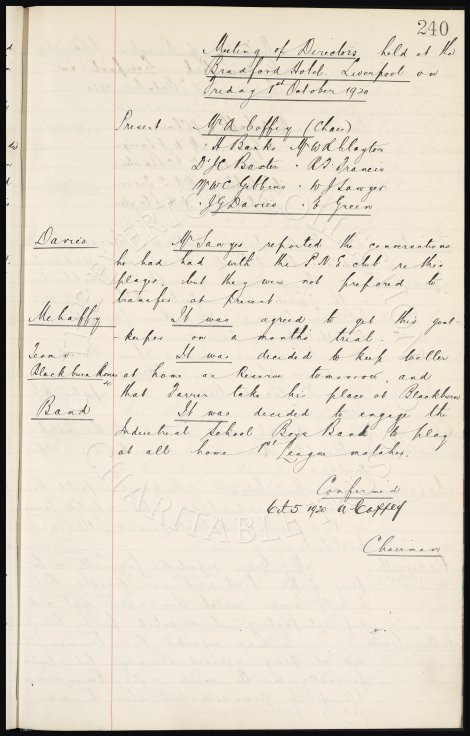 240
Meeting of Directors held at the
Bradford Hotel Liverpool on
Friday 1st October 1920
Present Mr A Coffey (Chair)
" A Banks Mr W R Clayton
Dr J C Baxter " A T Francis
Mr W C Gibbins " W J Sawyer
" J G Davies " E Green
Davies
Mr Sawyer reported the conversations
he had had with the P.N.E. club re this
player but they were not prepared to
transfer at present.
Mehaffy
It was agreed to get this goal-
keeper on a month's trial.
Team v
Blackburn Rovers
It was decided to keep Weller
at home as Reserve tomorrow, and
that Farrer take his place at Blackburn
Band
It was decided to engage the
Industrial School Boys Band to play
at all home 1st League matches.
Confirmed
Oct 5 1920 A Coffey
Chairman
CHARITABLE